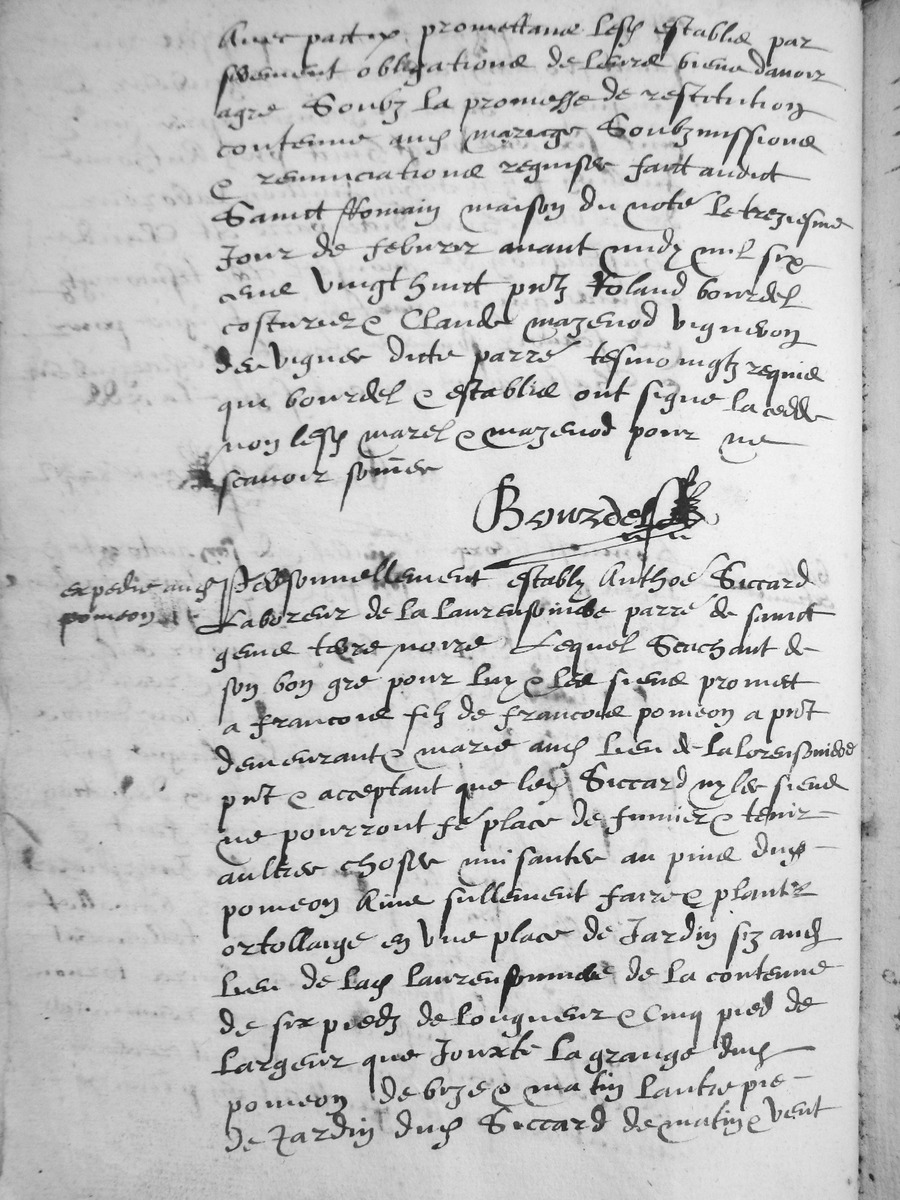 Avec pactz promettans lesd establis par
serement obligations de leurs biens davoir
agre Soubz la promesse de restitution
contenue aud mariage Soubzmissions
& renunciations requises faict audict
Sainct Romain maison du note le treziesme
Jour de febvrier avant midy mil six
cens vingt huict pntz Roland bourdel
costurier & Claude mazenod vigneron
des vignes dicte parre tesmoingtz requis
qui bourdel & establis ont signe la cedde
non lesd marel & mazenod pour ne
scavoir somes
Bourdel
expedie aud
pomeon
Personnellement estably Anthoe Siccard
Laboreur de la laurensonniere parre de sainct
genis terre noire Lequel Seachant de
son bon gre pour luy & les siens promect
a francois filz de francois pomeon a pnt
demeurant & marie aud lieu de la lorensoniere
pnt & acceptant que led Siccard ny les siens
ne pourront fe place de fumier & tenir
aultres choses nuisantes au pins dud
pomeon Ains sullement faire & planter
ortollaige en une place de Jardin siz aud
lieu de lad laurensonniere de la contenue
de six piedz de longueur & Cinq pied de
largeur que Jouxte la grange dud
pomeon de bize & matin lautre pie
de Jardin dud Siccard de matin & vent